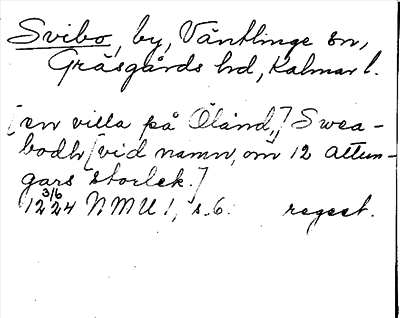 Svibo, by, Väntlinge sn,
Gräsgårds hd, Kalmar l.
[en villa på Öland,] Swea-
bodh [vid namn, om 12 attun-
gars storlek.]
12 3/6 24 NMU 1, s. 6. regest.